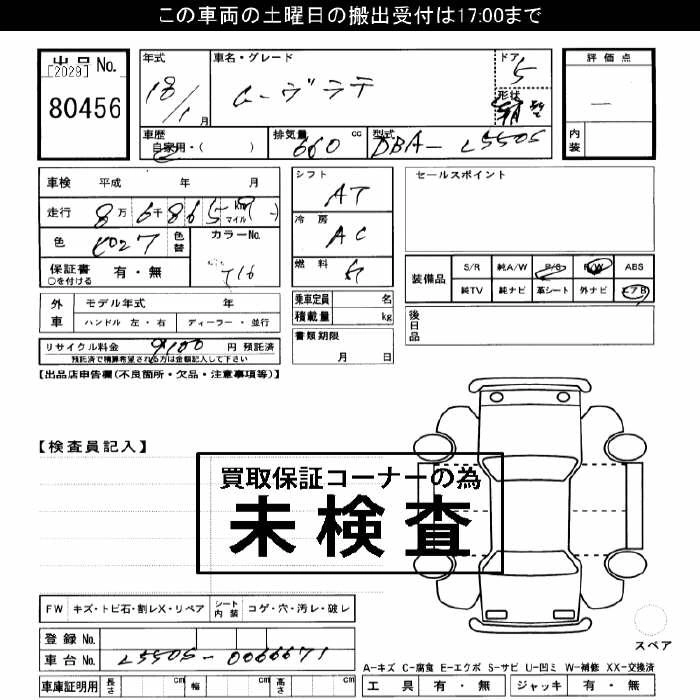 この車両の土曜日の搬出受付は17:00まで
出品No.
[2029]
80456
年式
18/1月
車名・グレード
ムーヴラテ
ドア
5
形状
評価点
—
内装
車歴
自家用・( )
排気量
660 cc
型式
DBA-L550S
車検 平成 年 月
走行 8万6千865 km マイル
色
色替
カラーNo.
T16
保証書
○を付ける
有・無
シフト
AT
冷房
AC
燃料
ガ
セールスポイント
装備品
S/R 純A/W P/S P/W ABS
純TV 純ナビ 革シート 外ナビ エアB
外車
モデル年式 年
ハンドル 左・右 ディーラー・並行
乗車定員 名
積載量 kg
後日品
リサイクル料金 9100 円 預託済
預託済で精算希望される方は金額記入して下さい
書類期限
月 日
【出品店申告欄(不良箇所・欠品・注意事項等)】
【検査員記入】
買取保証コーナーの為
未検査
FW キズ・トビ石・割レX・リペア シート内装 コゲ・穴・汚レ・破レ
登録No.
車台No. L550S-0066671
スペア
A-キズ C-腐食 E-エクボ S-サビ U-凹ミ W-補修 XX-交換済
車庫証明用 長さ cm 幅 cm 高さ cm
工具 有・無 ジャッキ 有・無